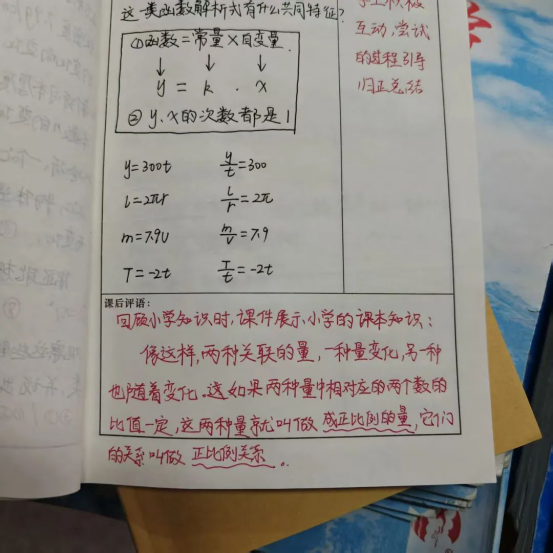 这一类函数解析式有什么共同特征?
①函数=常量×自变量.
↓ ↓ ↓
y = k . x
②y、x的次数都是1
y=300t y/t=300
l=2πr l/r=2π
m=7.9V m/V=7.9
T=-2t T/t=-2t
互动,尝试
的过程引导
归正总结
课后评语:
回顾小学知识时,课件展示小学的课本知识:
像这样,两种关联的量,一种量变化,另一种
也随着变化.这如果两种量中相对应的两个数的
比值一定,这两种量就叫做 成正比例的量,它们
的关系叫做 正比例关系.